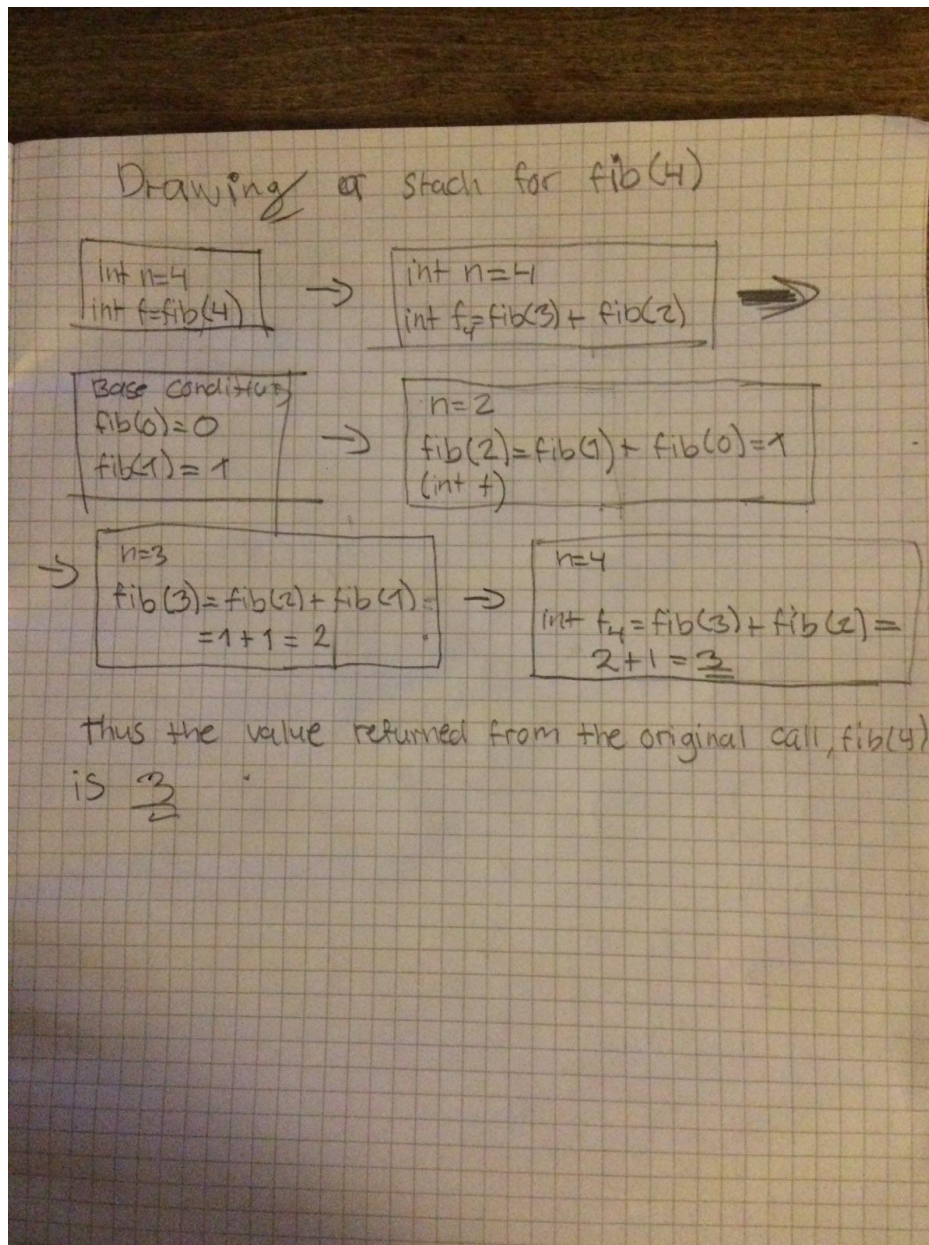 Drawing a stack for fib(4)
int n=4
int f=fib(4)
→
int n=4
int f₄=fib(3)+ fib(2)
→
Base condition
fib(0)=0
fib(1)=1
→
n=2
fib(2)=fib(1)+ fib(0)=1
(int f)
→
n=3
fib(3)=fib(2)+ fib(1)=
=1+1=2
→
n=4
int f₄=fib(3)+fib(2)=
2+1=3
thus the value returned from the original call, fib(4)
is 3